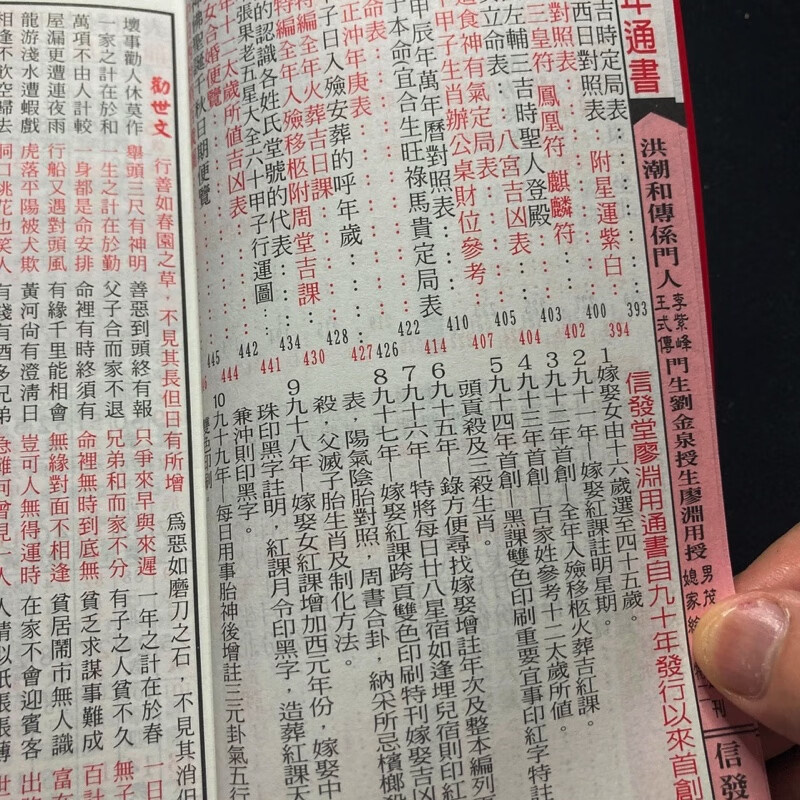 年通書
洪潮和傳係門人
李紫峰
王式傳
門生劉金泉授生廖淵用授
男茂
媳家
刊
信發
信發堂廖淵用通書自九十年發行以來首創
1嫁娶女由十六歲選至四十五歲。
2九十一年—嫁娶紅課註明星期。
3九十二年首創—全年入殮移柩火葬吉紅課。
4九十三年首創—百家姓參考十二太歲所值。
5九十四年首創—黑課雙色印刷重要宜事印紅字特註
頭貢殺及三殺生肖。
6九十五年—錄方便尋找嫁娶增註年次及整本編列
7九十六年—特將每日廿八星宿如逢埋兒宿則印紅
8九十七年—嫁娶紅課跨頁雙色印刷特刊嫁娶吉凶
表,陽氣陰胎對照,周書合卦,納采所忌檳榔殺
殺,父滅子胎生肖及制化方法。
9九十八年—嫁娶女紅課增加西元年份,嫁娶中
珠印黑字註明,紅課月令印黑字,造葬紅課天
兼沖則印黑字。
10九十九年—每日用事胎神後增註三元卦氣五行
雙色印刷
吉時定局表 393
西日對照表 附星運紫白 394
對照表 400
三皇符 鳳凰符 麒麟符 402
左輔三吉時聖人登殿 403
立命表 八宮吉凶表 404
食神有氣定局表 405
甲子生肖辦公桌財位參考 407
甲辰年萬年曆對照表 410
本命宜合生旺祿馬貴定局表 414
命表 422
子日入殮安葬的呼年歲 426
正沖年庚表 427
特編全年火葬吉日課 428
特編全年入殮移柩附周堂吉課 430
的認識各姓氏堂號的代表 434
張果老五星大全六十甲子行運圖 441
年十二太歲所值吉凶表 442
女合婚便覽 444
佛聖誕千秋日期便覽 445
勸世文
行善如春園之草,不見其長但日有所增
為惡如磨刀之石,不見其消但
壞事勸人休莫作 舉頭三尺有神明 善惡到頭終有報 只爭來早與來遲
一年之計在於春 一日
一家之計在於和 一生之計在於勤 父子合而家不退 兄弟和而家不分
有子之人貧不久 無子
萬項不由人計較 一身都是命安排 命裡有時終須有 命裡無時到底無
貧乏求謀事難成 百計
屋漏更遭連夜雨 行船又遇對頭風 有緣千里能相會 無緣對面不相逢
貧居鬧市無人識 富在
龍游淺水遭蝦戲 虎落平陽被犬欺 黃河尚有澄清日 豈可人無得運時
在家不會迎賓客 出
相逢不飲空歸去 洞口桃花也笑人 有錢有酒多兄弟 急難何曾見一人
人情似紙張張薄 世